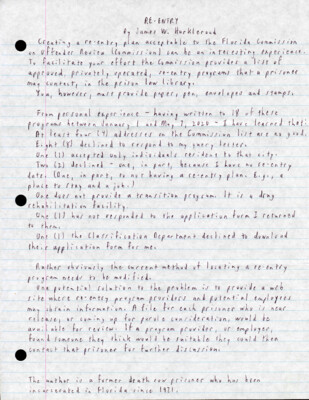 RE-ENTRY
By James W. Harklerood
Creating a re-entry plan acceptable to the Florida Commission
on Offender Review (Commission) can be an interesting experience.
To facilitate your effort the Commission provides a list of
approved, privately, operated, re-entry programs that a prisoner may
contact, in the prison law library.
You, however, must provide paper, pen, envelopes and stamps.
From personal experience - having written to 18 of these
programs between January 1 and May 7, 2020 - I have learned that:
At least four (4) addresses on the Commission list are no good.
Eight (8) declined to respond to my query letter.
One (1) accepted only individuals resident to that city.
Two (2) declined - one, in part, because I have no re-entry
date. (One, in part, to not having a re-entry plan. E.g., a
place to stay and a job.)
One does not provide a transition program. It is a drug
rehabilitation facility.
One (1) has not responded to the application form I returned
to them.
One (1) the Classification Department declined to download
their application form for me.
Rather obviously, the current method of locating a re-entry
program needs to be modified.
One potential solution to the problem is to provide a web
site where re-entry program providers and potential employers,
may obtain information. A file for each prisoner who is near
release, or coming up for parole consideration, would be
available for review. If a program provider, or employer,
found someone they think would be suitable they could then
contact that prisoner for further discussion.
The author is a former death row prisoner who has been
incarcerated in Florida since